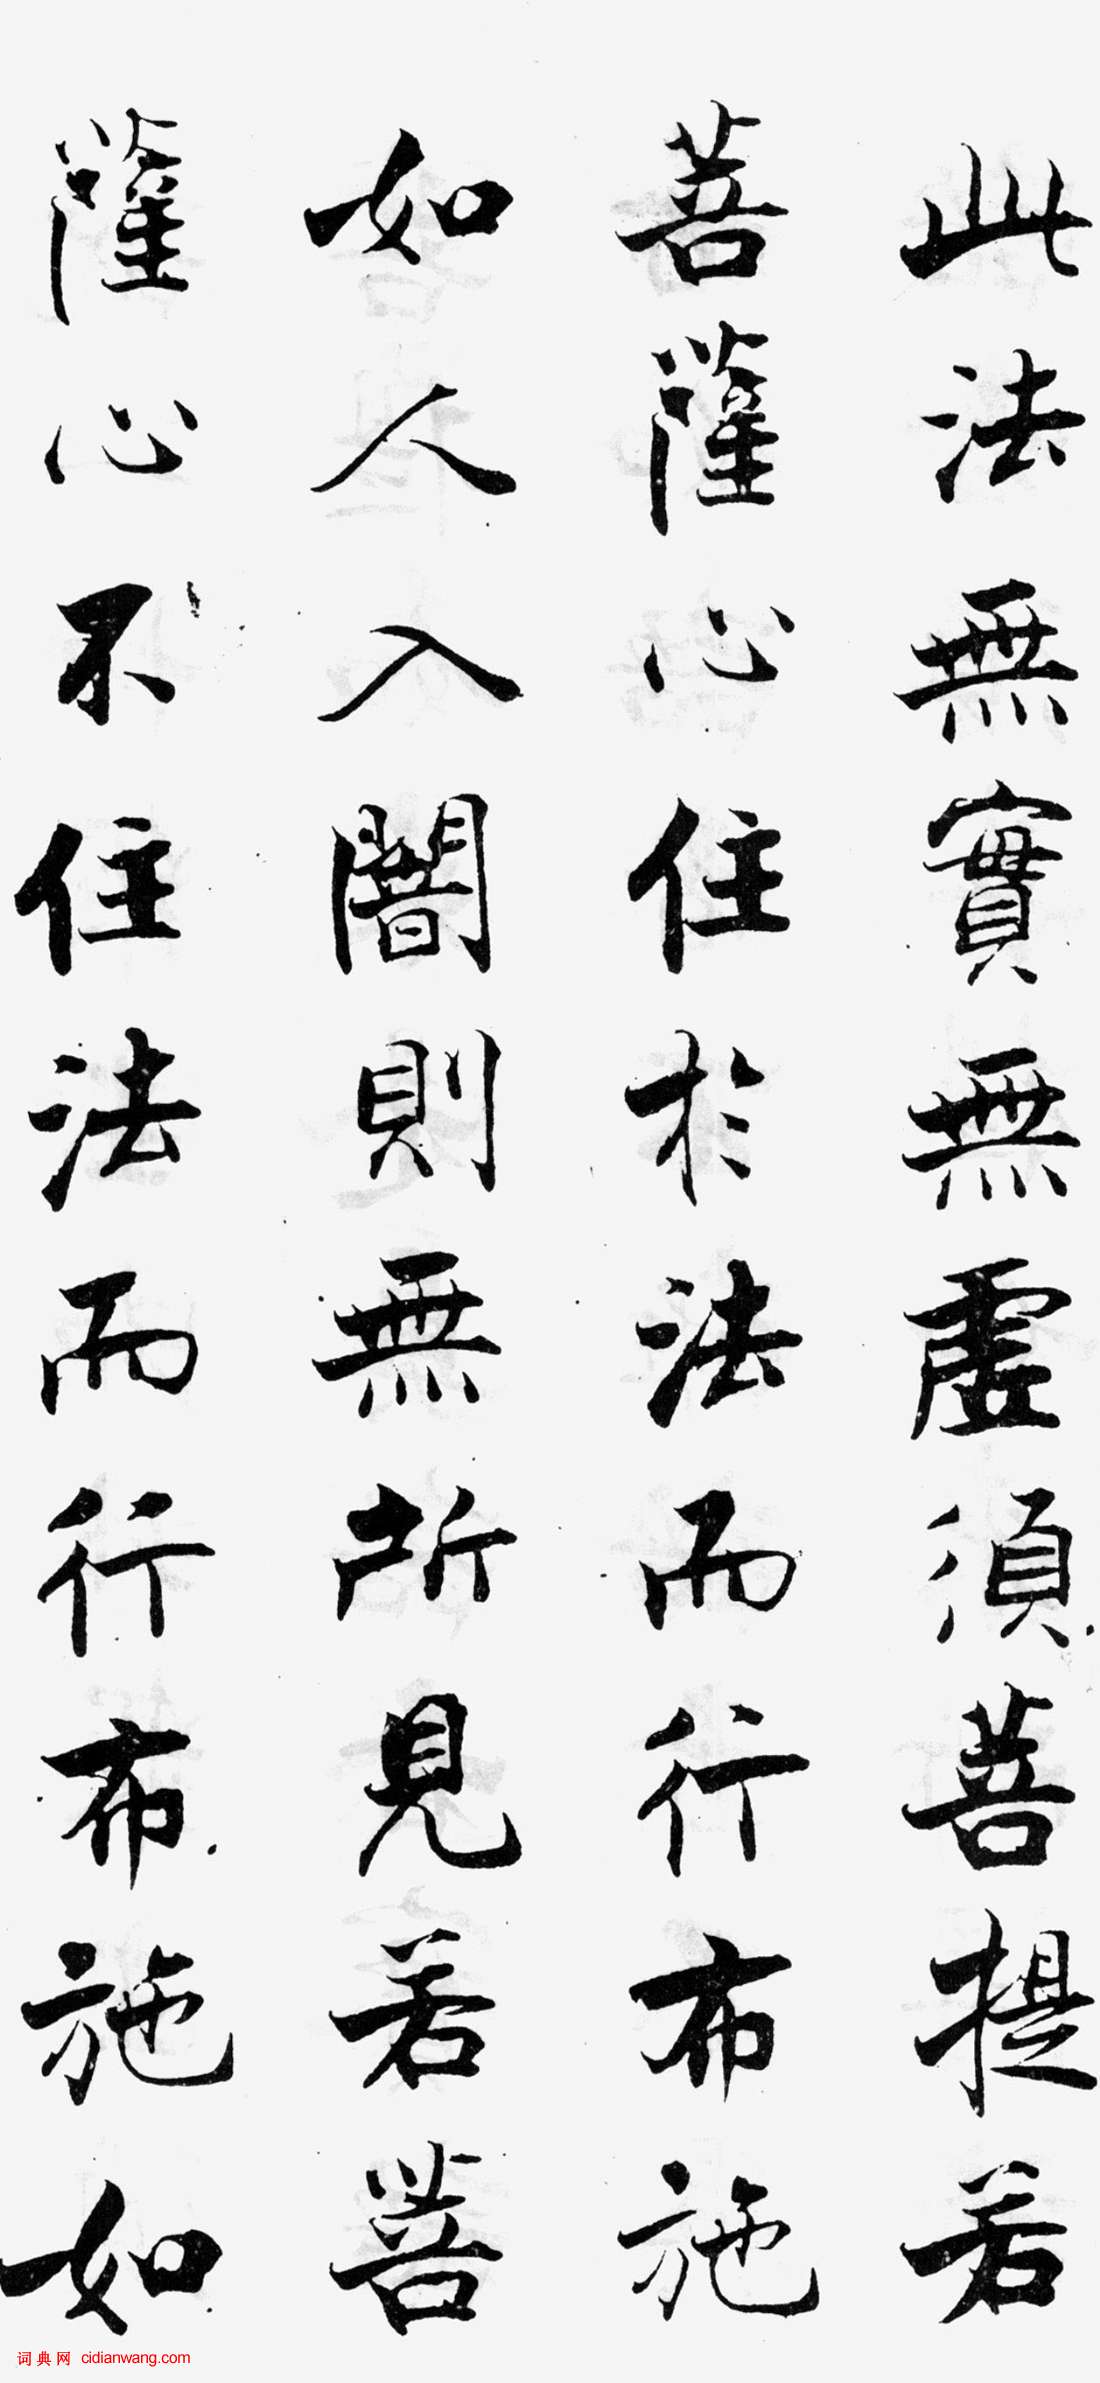 此法無實無虛須菩提若
菩薩心住於法而行布施
如人入闇則無所見若菩
薩心不住法而行布施如
词典网 cidianwang.com